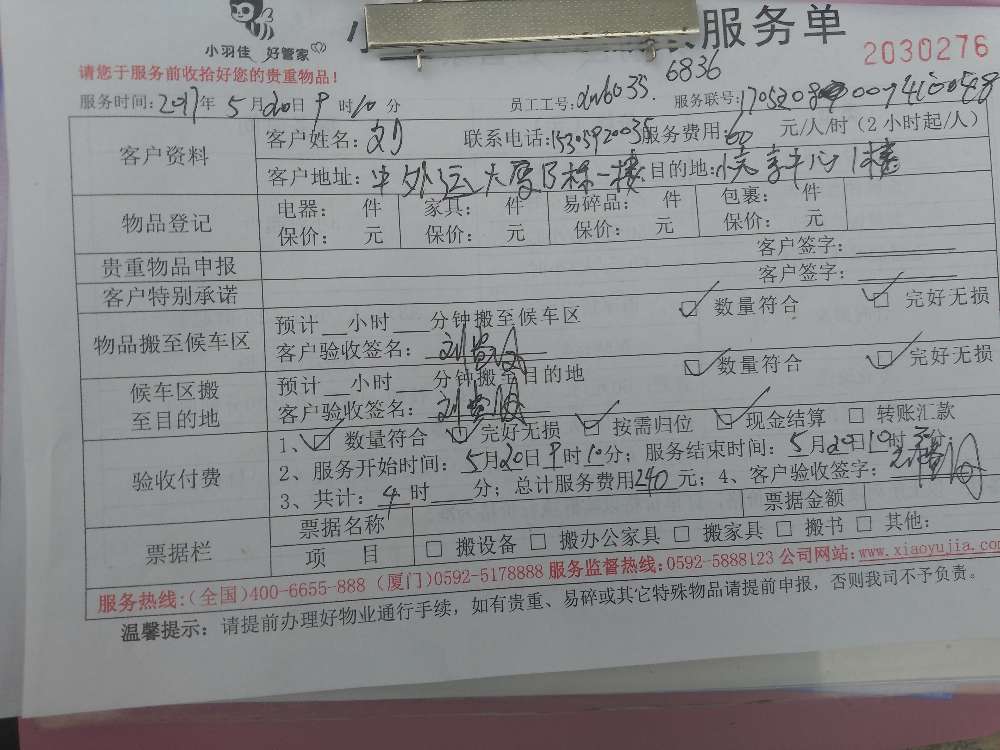 小羽佳 好管家
服务单
2030276
请您于服务前收拾好您的贵重物品!
6836
服务时间:2017年5月20日9时10分 员工工号: 服务联号:
客户资料
客户姓名:刘 联系电话:15305920035 服务费用:60 元/人/时(2小时起/人)
客户地址:中外运大厦B栋一楼 目的地:悦享中心1楼
物品登记
电器: 件 家具: 件 易碎品: 件 包裹: 件
保价: 元 保价: 元 保价: 元 保价: 元
贵重物品申报 客户签字:
客户特别承诺 客户签字:
物品搬至候车区
预计__小时___分钟搬至候车区 数量符合 完好无损
客户验收签名:
候车区搬至目的地
预计__小时___分钟搬至目的地 数量符合 完好无损
客户验收签名:
验收付费
1、数量符合 完好无损 按需归位 现金结算 转账汇款
2、服务开始时间:5月20日9时10分;服务结束时间:5月20日10时 分;
3、共计:4时___分;总计服务费用240元;4、客户验收签字:
票据栏
票据名称 票据金额
项 目 搬设备 搬办公家具 搬家具 搬书 其他:
服务热线:(全国)400-6655-888 (厦门)0592-5178888 服务监督热线:0592-5888123 公司网站:www.xiaoyujia.com
温馨提示:请提前办理好物业通行手续,如有贵重、易碎或其它特殊物品请提前申报,否则我司不予负责。